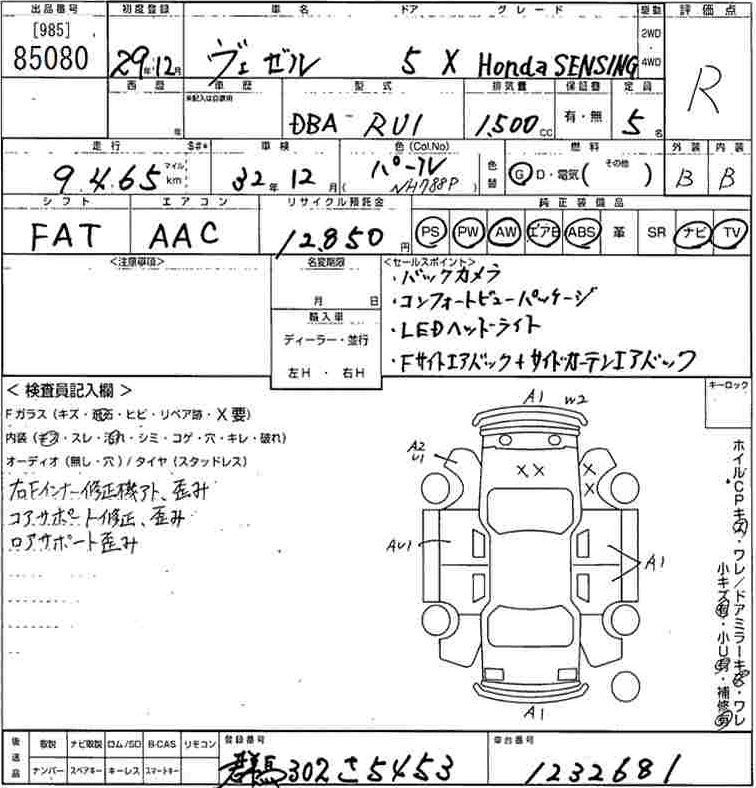 出品番号 初度登録 車名 ドア グレード 駆動 評価点
[985]
85080 29年12月 ヴェゼル 5 X Honda SENSING 2WD・4WD R
西暦 車歴 型式 排気量 保証書 定員
年 未記入は自家用 DBA-RU1 1,500cc 有・無 5名
走行 $#* 車検 色(Col.No) 燃料 外装 内装
9,465 マイル km 32年12月 パール (NH788P) 色替 G D・電気 (その他) B B
シフト エアコン リサイクル預託金 純正装備品
FAT AAC 12,850円 PS PW AW エアB ABS 革 SR ナビ TV
<注意事項> 名変期限 <セールスポイント>
月 日
・バックカメラ
・コンフォートビューパッケージ
・LEDヘッドライト
・Fサイドエアバック+サイドカーテンエアバック
輸入車
ディーラー・並行
左H・右H
<検査員記入欄> キーロック
Fガラス(キズ・飛石・ヒビ・リペア跡・X要)
内装(キズ・スレ・汚れ・シミ・コゲ・穴・キレ・破れ)
オーディオ(無し・穴)/タイヤ(スタッドレス)
右Fインナー修正機アト、歪み
コアサポート修正、歪み
ロアサポート歪み
A1 W2
A2
U1
X X
X
X
AU1
A1
A1
ホイルCPキズ・ワレ/ドアミラーキズ・ワレ
小キズ有・小U有・補修有
後送品 取説 ナビ取説 ロム/SD B-CAS リモコン 登録番号 車台番号
ナンバー スペアキー キーレス スマートキー 群馬302さ5453 1232681